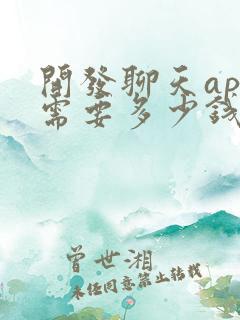 開發聊天ap
需要多少錢
曾世湘
未經同意禁止轉載